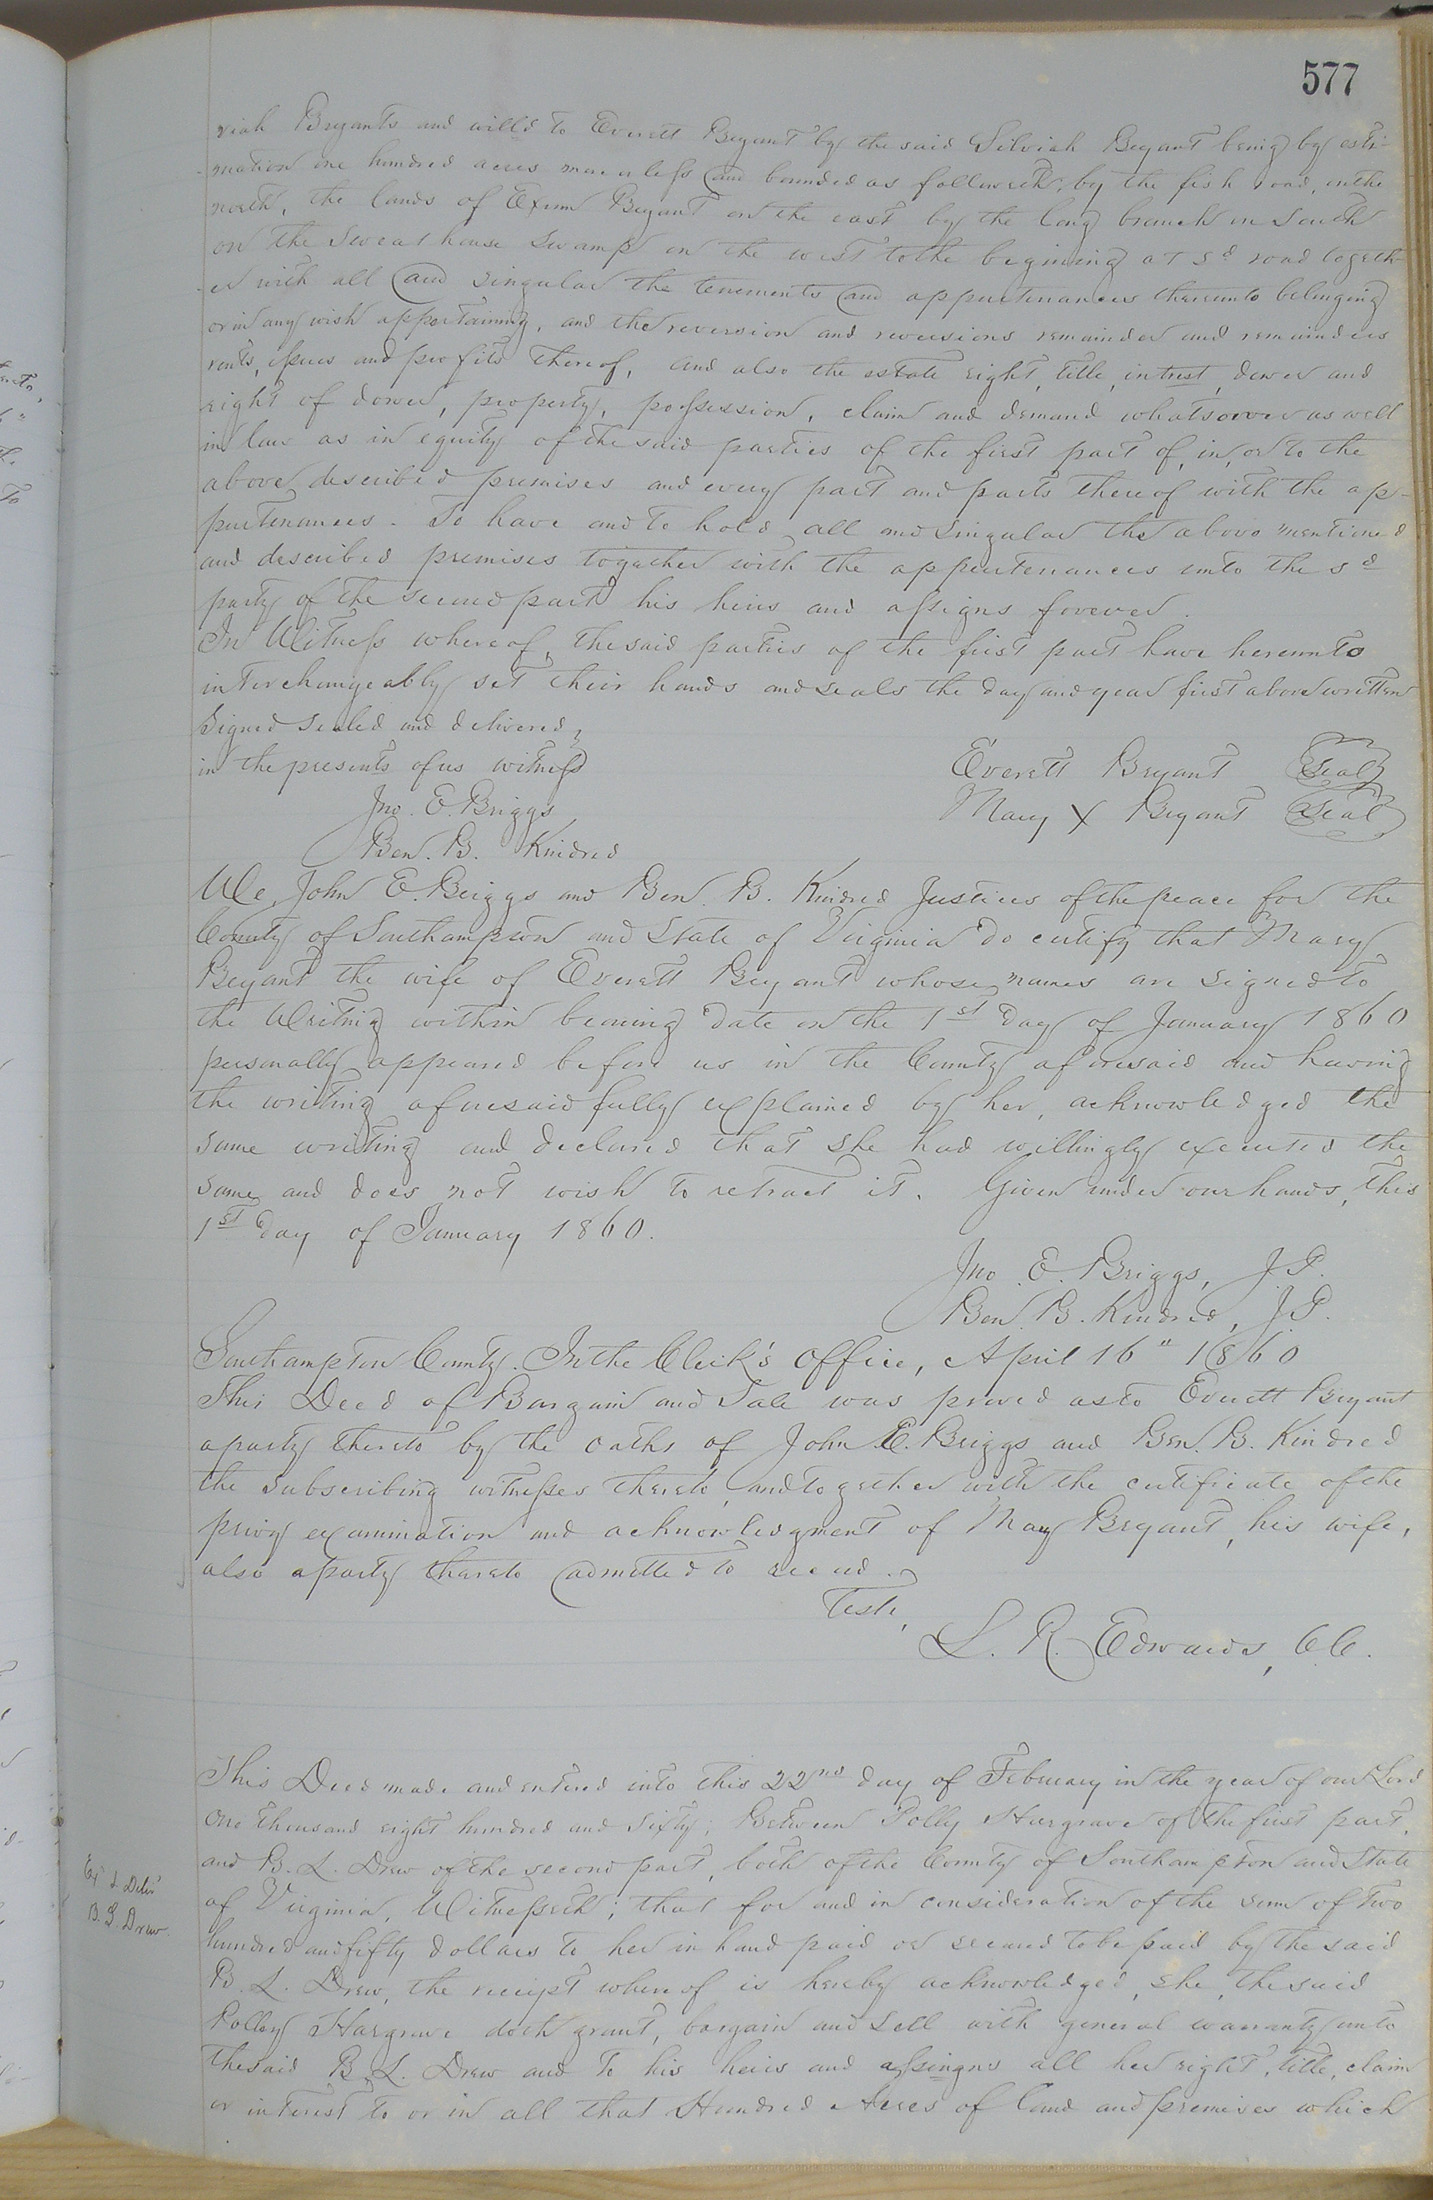 577
riah Bryants and will'd to Everett Bryant by the said Selviah Bryant being by esti-
mation one hundred acres more or less and bounded as followeth, by the fish road, on the
north, the lands of Exum Bryant on the east by the long branch on South
on the Sweat house Swamp on the west to the begining at sd road togeth-
er with all and singular the tenements and appurtenances thereunto belonging
or in any wish appertaining, and the reversion and reversions remainder and remainders
rents, issues and profits thereof, and also the estate right, title, intrest, dower and
right of dower, property, possession, claim and demand whatsoever as well
in law as in equity of the said parties of the first part of, in, or to the
above described premises and every part and parts thereof with the ap-
purtenances. To have and to hold all and singular the above mentioned
and described premises together with the appurtenances unto the sd
party of the second part his heirs and assigns forever.
In Witness whereof, the said parties of the first part have hereunto
interchangeably set their hands and seals the day and year first above written
Signed sealed and delivered,
in the presents of us witness
Everett Bryant Seal
Jno. E. Briggs
Mary X Bryant Seal
Ben. B. Kindred
We, John E. Briggs and Ben. B. Kindred Justices of the peace for the
County of Southampton and State of Virginia do certify that Mary
Bryant the wife of Everett Bryant whose names are signed to
the Writing within bearing date on the 1st day of January 1860
personally appeared before us in the County aforesaid and having
the writing aforesaid fully explained by her, acknowledged the
same writing and declared that she had willingly executed the
same and does not wish to retract it. Given under our hands, this
1st day of January 1860.
Jno. E. Briggs, J.P.
Ben. B. Kindred, J.P.
Southampton County. In the Clerk's office, April 16" 1860
This Deed of Bargain and Sale was proved as to Everett Bryant
a party thereto by the oaths of John E. Briggs and Ben. B. Kindred
the subscribing witnesses thereto, and together with the certificate of the
privy examination and acknowledgment of Mary Bryant, his wife,
also a party thereto admitted to record.
Teste,
L. R. Edwards, CC.
This Deed made and entered into this 22nd day of February in the year of our Lord
one thousand eight hundred and sixty; Between Polly Hargrave of the first part,
and B. L. Drew of the second part, both of the County of Southampton and State
of Virginia, Witnesseth; that for and in consideration of the sum of two
hundred and fifty dollars to her in hand paid or secured to be paid by the said
B. L. Drew, the receipt whereof is hereby acknowledged, she, the said
Polley Hargrave doth grant, bargain and sell with general warranty unto
the said B. L. Drew and to his heirs and assingns all her right, title, claim
or interest to or in all that Hundred Acres of land and premises which
Exd & Delivd
B. L. Drew.